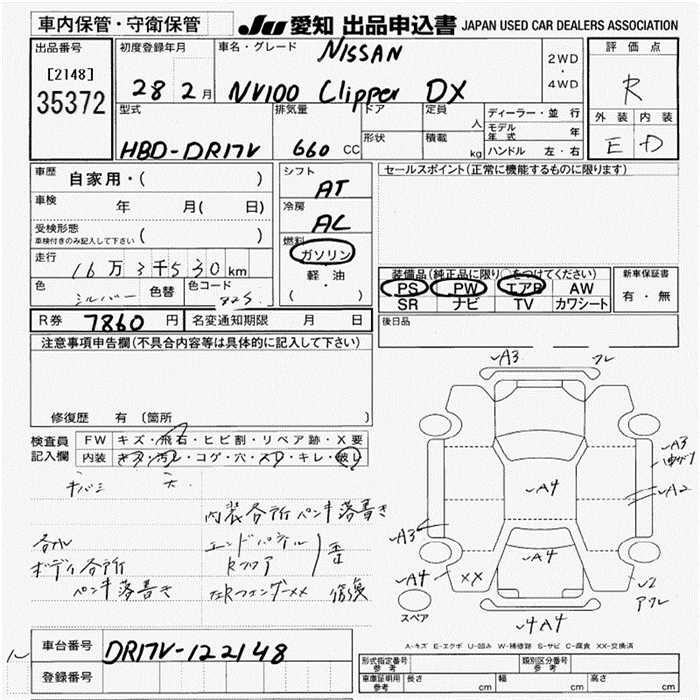 車内保管・守衛保管
JU 愛知 出品申込書 JAPAN USED CAR DEALERS ASSOCIATION
出品番号
[2148]
35372
初度登録年月
28 2月
車名・グレード
NISSAN
NV100 Clipper DX
2WD
・
4WD
評価点
R
外装 内装
E D
型式
HBD-DR17V
排気量
660 CC
ドア
形状
定員
人
積載
kg
ディーラー・並行
モデル年式 年
ハンドル 左・右
車歴
自家用・( )
車検
年 月( 日)
受検形態
車検付きのみ記入して下さい ( )
走行
16万3千530km
色
シルバー
色替
色コード
シフト
AT
冷房
AC
燃料
ガソリン
軽・油
( ・ )
セールスポイント(正常に機能するものに限ります)
装備品(純正品に限り○をつけてください)
PS PW エアB AW
SR ナビ TV カワシート
新車保証書
有・無
後日品
R券 7860 円
名変通知期限 月 日
注意事項申告欄(不具合内容等は具体的に記入して下さい)
修復歴 有〔箇所 〕
検査員
記入欄
FW キズ・飛石・ヒビ割・リペア跡・X要
内装 キズ・汚レ・コゲ・穴・スレ・キレ・破レ
内装各所ペンキ落書き
ボディ各所
ペンキ落書き
エンドパネル
Rフロア
歪
左Rフェンダーxx 修復
A3
フレ
A3
A2
A4
A3
A4
A4
XX
4A4
スペア
A-キズ E-エクボ U-凹み W-補修跡 S-サビ C-腐食 XX-交換済
車台番号
DR17V-122148
登録番号
形式指定番号
参考
類別区分番号
参考
車庫証明用
参考
長さ cm
幅 cm
高さ cm